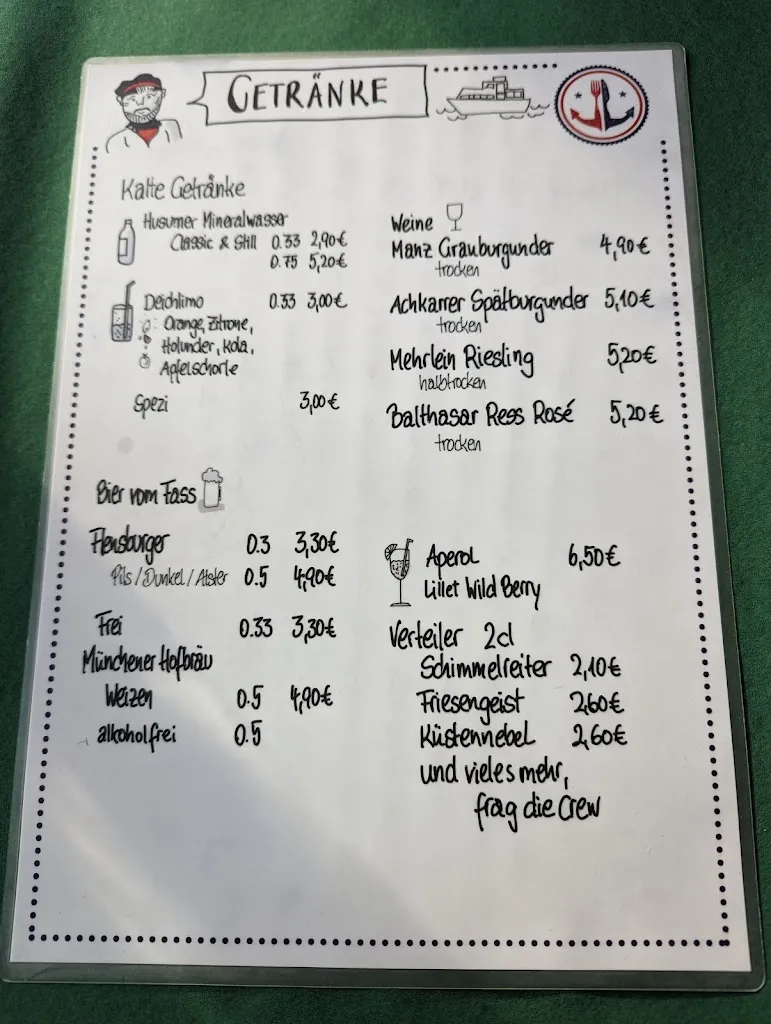 GETRÄNKE
Kalte Getränke
Husumer Mineralwasser
Classic & Still 0.33 2,90€
0.75 5,20€
Deichlimo 0.33 3,00€
Orange, Zitrone,
Holunder, Kola,
Apfelschorle
Spezi 3,00€
Bier vom Fass
Flensburger 0.3 3,30€
Pils/Dunkel/Alster 0.5 4,90€
Frei 0.33 3,30€
Münchener Hofbräu
Weizen 0.5 4,90€
alkoholfrei 0.5
Weine
Manz Grauburgunder 4,90€
trocken
Achkarrer Spätburgunder 5,10€
trocken
Mehrlein Riesling 5,20€
halbtrocken
Balthasar Ress Rosé 5,20€
trocken
Aperol 6,50€
Lillet Wild Berry
Verteiler 2cl
Schimmelreiter 2,10€
Friesengeist 2,60€
Küstennebel 2,60€
und vieles mehr,
frag die Crew